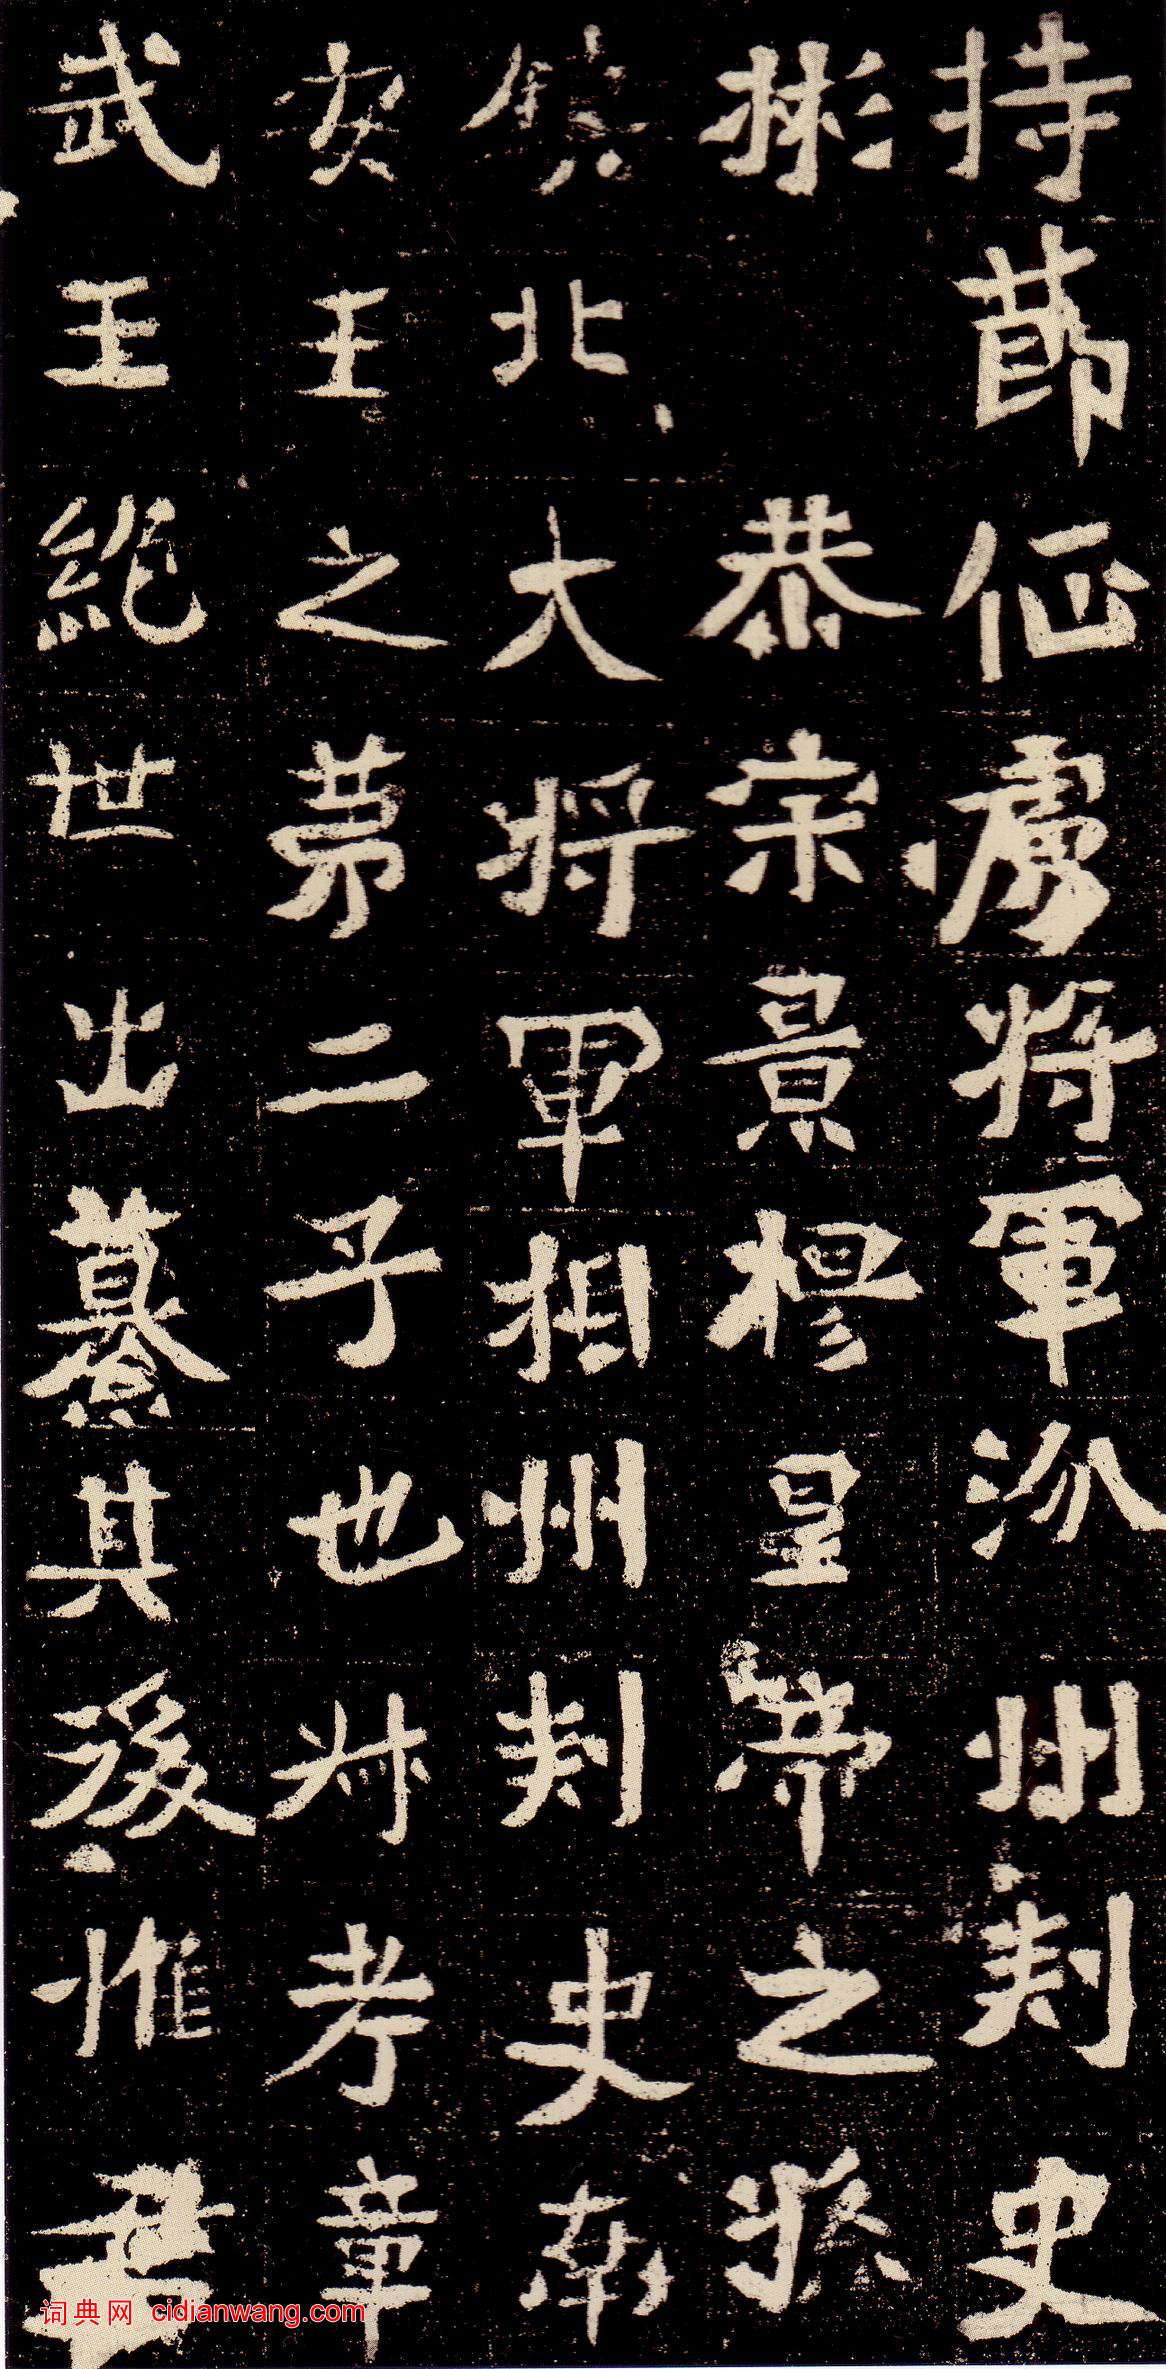 持節征虜將軍汾州刺史
彬 恭宗景穆皇帝之孫
鎮北大將軍相州刺史南
安王之第二子也叔考章
武王絕世出纂其後惟君
词典网 cidianwang.com